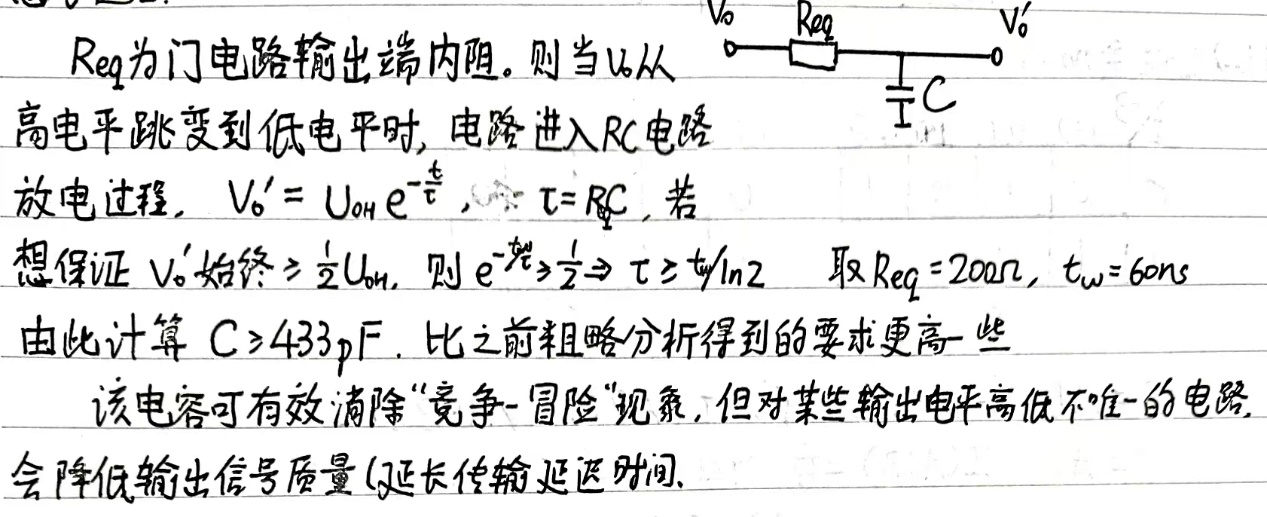 V₀ Req V₀′
Req为门电路输出端内阻。则当V₀从
C
高电平跳变到低电平时, 电路进入RC电路
放电过程, V₀′ = U_OH e^(-t/τ), τ=RC, 若
想保证 V₀′始终 ≥ 1/2 U_OH, 则 e^(-tw/τ) ≥ 1/2 ⇒ τ ≥ tw/ln2 取 Req = 200Ω, tw = 60ns
由此计算 C≥433pF. 比之前粗略分析得到的要求更高一些
该电容可有效消除“竞争-冒险”现象, 但对某些输出电平高低不唯一的电路,
会降低输出信号质量(延长传输延迟时间.